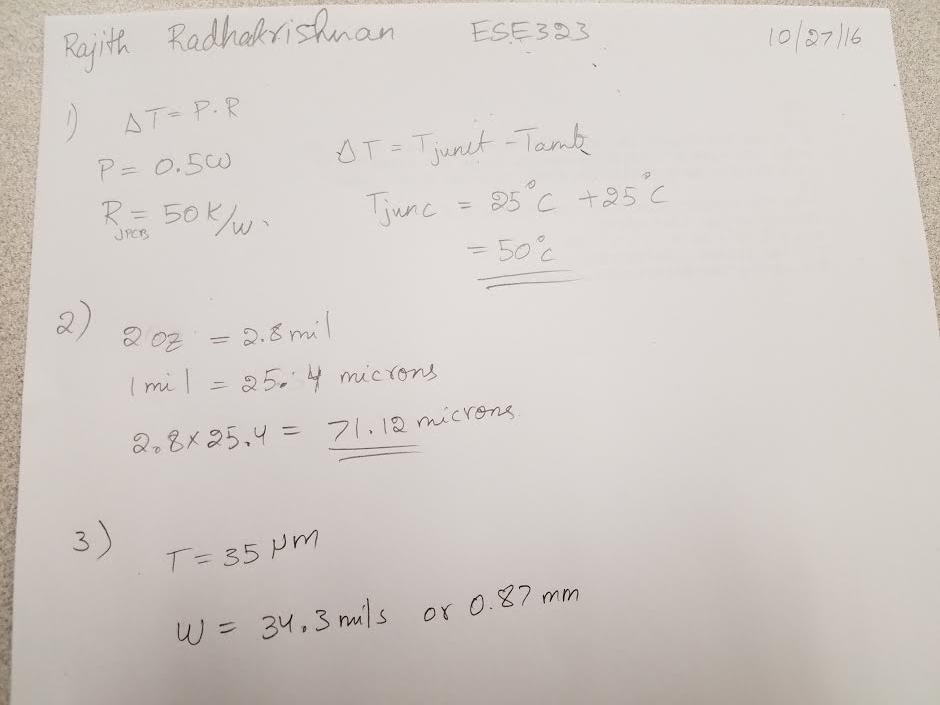 Rajith Radhakrishnan ESE323 10/27/16
1) ΔT = P.R
P = 0.5W
R JPCB = 50 K/W.
ΔT = Tjunct - Tamb
Tjunc = 25°C + 25°C
= 50°C
2) 2 oz = 2.8 mil
1 mil = 25.4 microns
2.8 x 25.4 = 71.12 microns
3) T = 35 μm
W = 34.3 mils or 0.87 mm